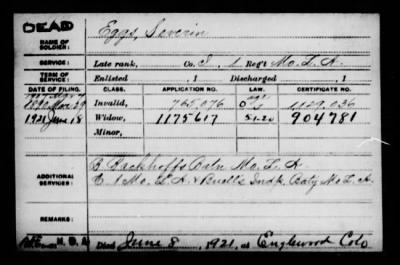 DEAD
NAME OF SOLDIER: Eggs, Severin
SERVICE: Late rank, Co. I, 1 Reg't Mo. L. A.
TERM OF SERVICE: Enlisted , 1 Discharged , 1
DATE OF FILING. CLASS. APPLICATION NO. LAW. CERTIFICATE NO.
1890 Invalid, 765,076 1129,036
1921 June 18 Widow, 1175617 5-1-20 904781
Minor,
ADDITIONAL SERVICES: B Backhoffs Batn Mo. L. A.
1 Mo. L. A. & Buell's Indp. Baty Mo L. A.
REMARKS:
Died June 8, 1921, at Englewood Colo